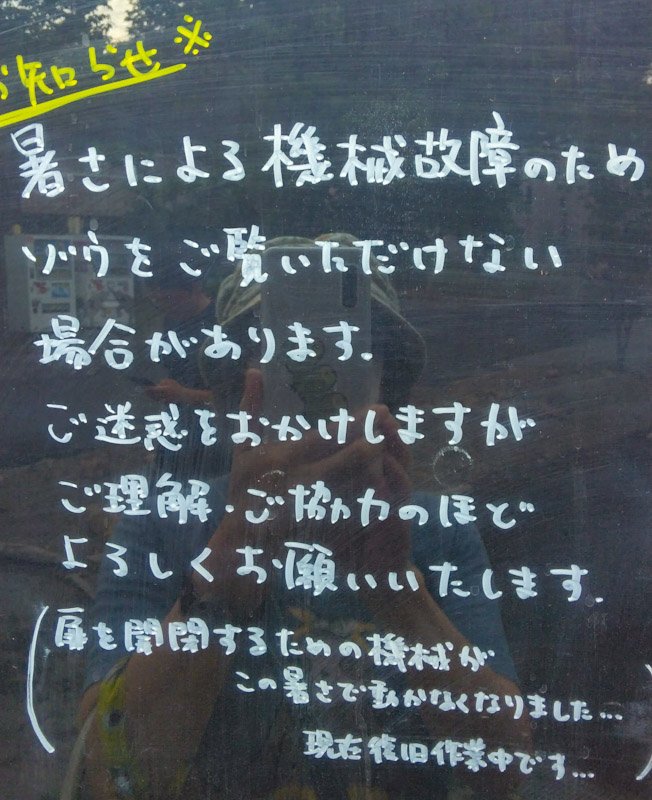 お知らせ※
暑さによる機械故障のため
ゾウをご覧いただけない
場合があります。
ご迷惑をおかけしますが
ご理解・ご協力のほど
よろしくお願いいたします.
(扉を開閉するための機械が
この暑さで動かなくなりました...
現在復旧作業中です...)